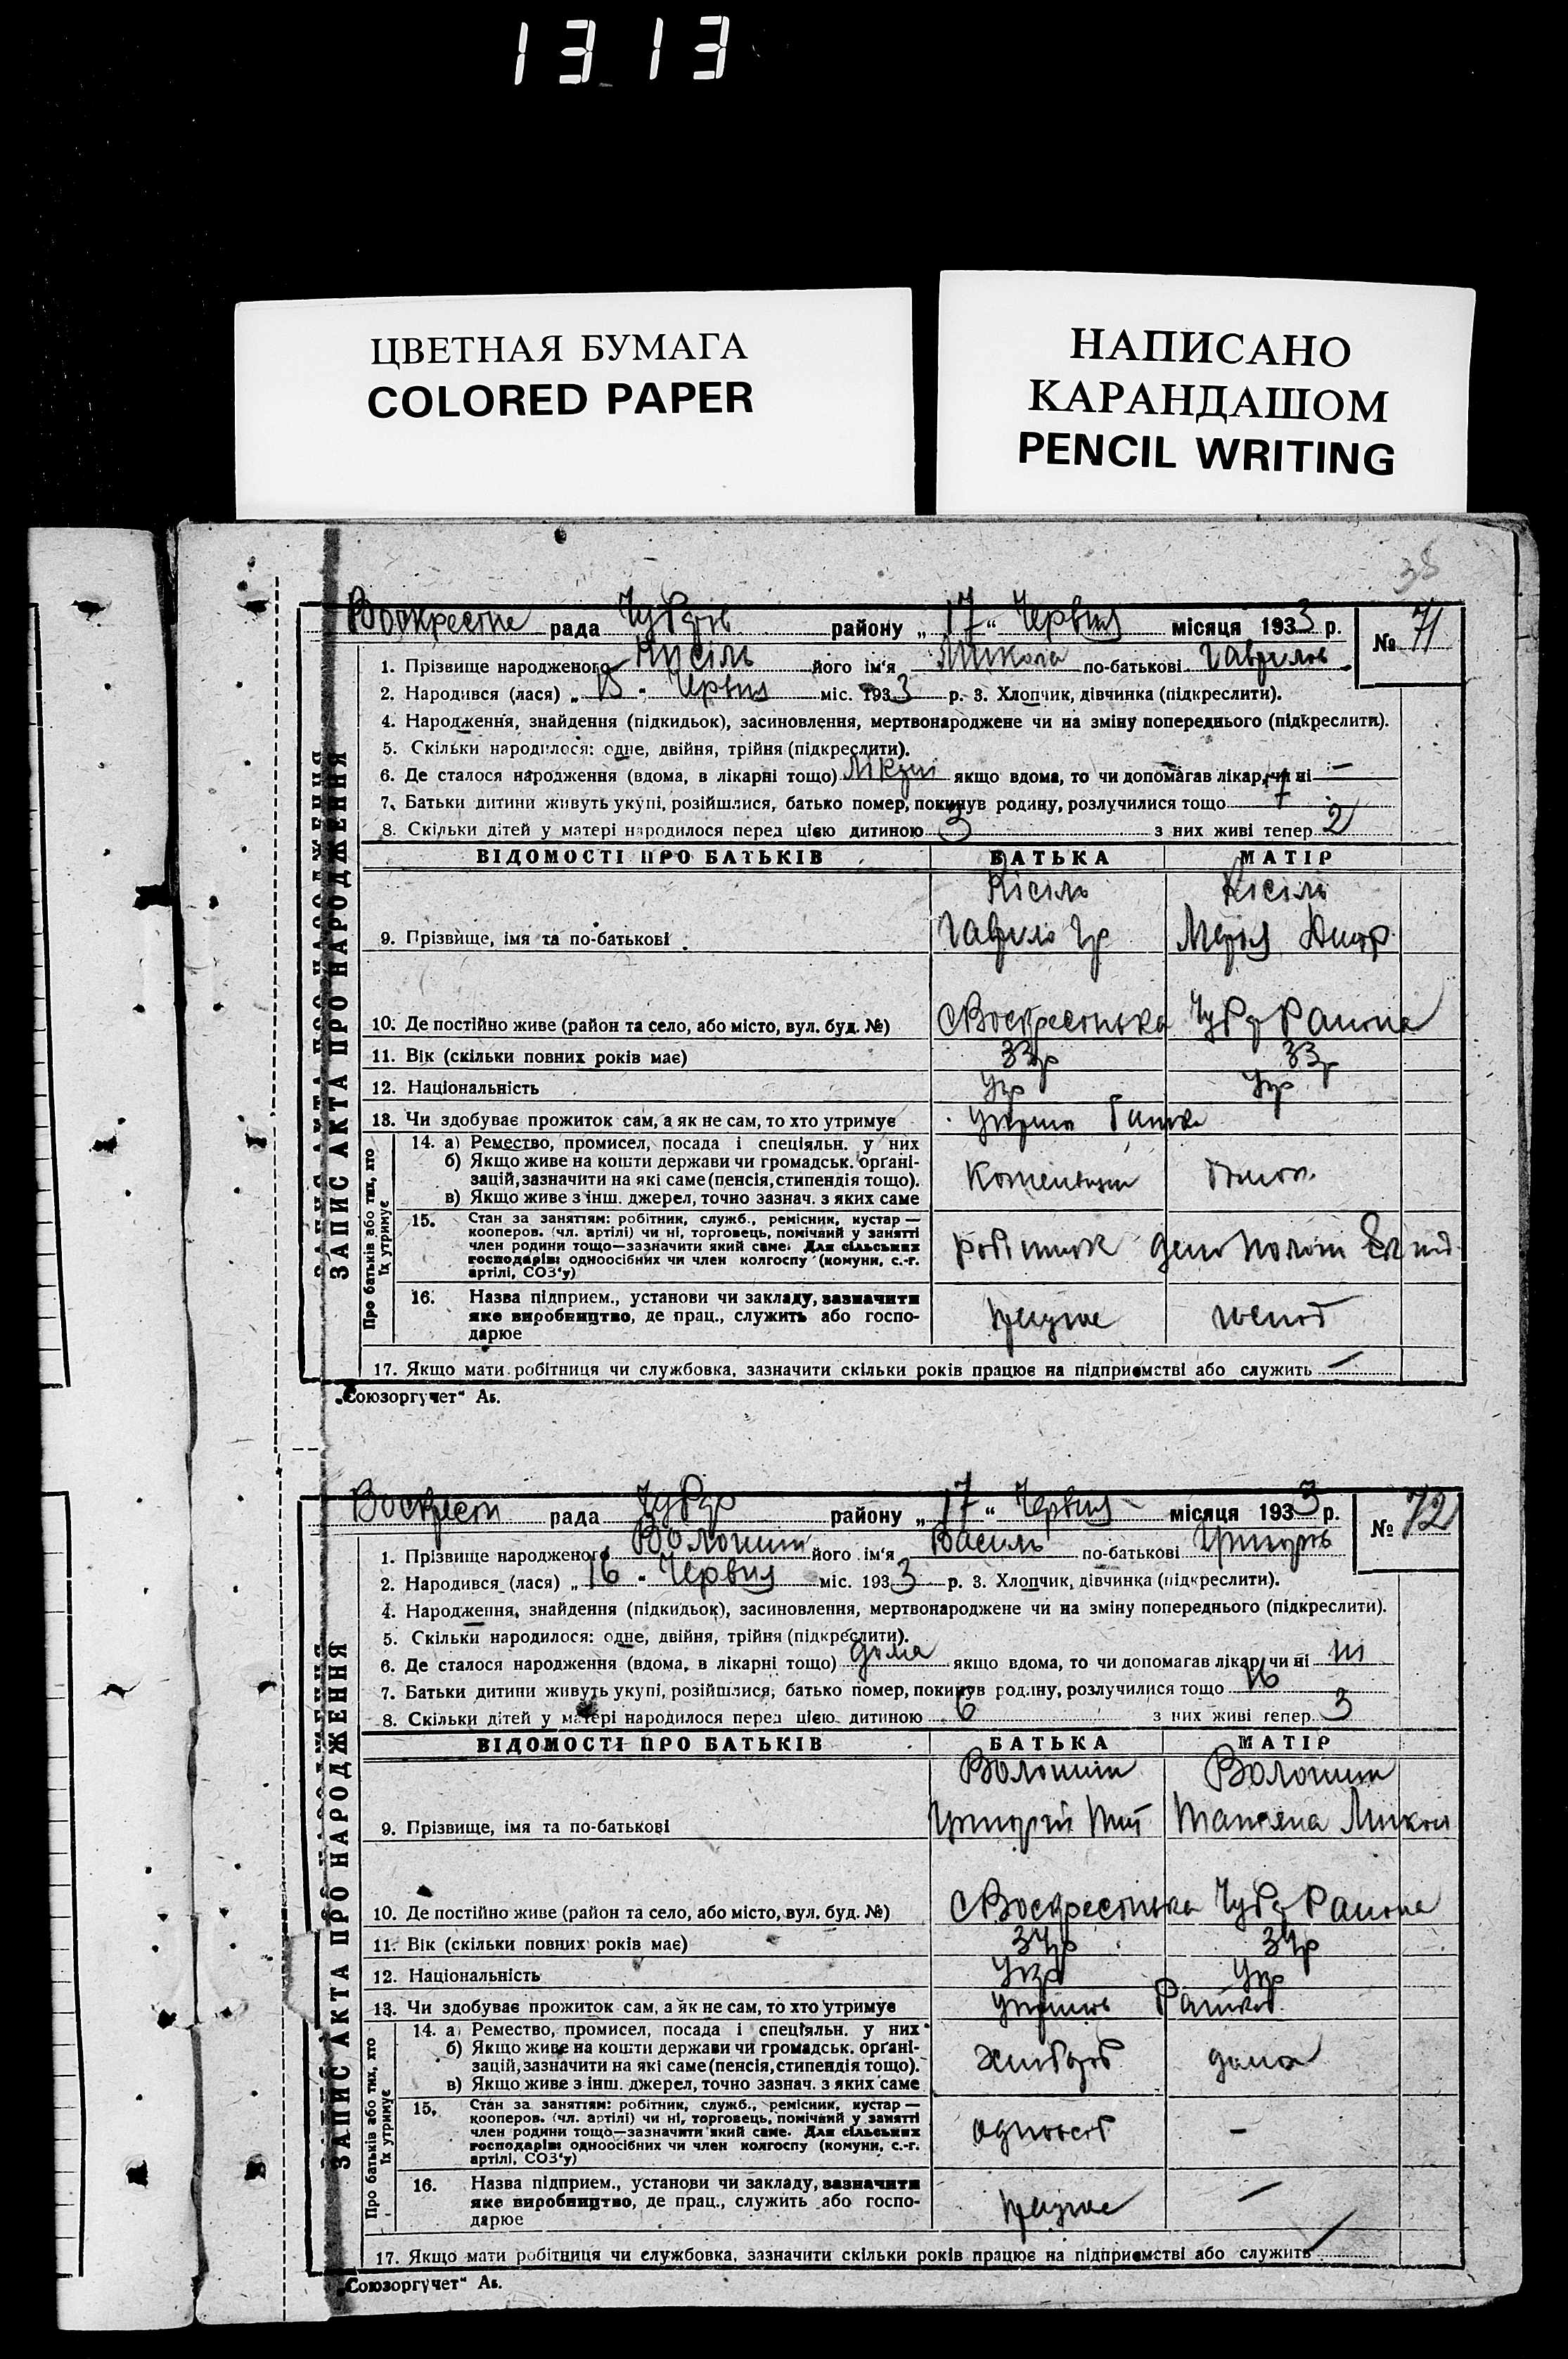 1313
ЦВЕТНАЯ БУМАГА
COLORED PAPER
НАПИСАНО
КАРАНДАШОМ
PENCIL WRITING
38
ЗАПИС АКТА ПРО НАРОДЖЕННЯ
рада району „ 17 “ Червня місяця 1933 р. № 71
1. Прізвище народженого Кисіль його ім'я Микола по-батькові Гаврилов
2. Народився (лася) „ 15 " Червня міс. 1933 р. 3. Хлопчик, дівчинка (підкреслити).
4. Народження, знайдення (підкидьок), засиновлення, мертвонароджене чи на зміну попереднього (підкреслити).
5. Скільки народилося: одне, двійня, трійня (підкреслити).
6. Де сталося народження (вдома, в лікарні тощо) якщо вдома, то чи допомагав лікар, чи ні —
7. Батьки дитини живуть укупі, розійшлися, батько помер, покинув родину, розлучилися тощо
8. Скільки дітей у матері народилося перед цією дитиною 3 з них живі тепер 2
ВІДОМОСТІ ПРО БАТЬКІВ БАТЬКА МАТІР
Кісіль Кісіль
9. Прізвище, імя та по-батькові Гаврило Гр
10. Де постійно живе (район та село, або місто, вул. буд. №) С Воскресенька Чубар Района
11. Вік (скільки повних років має) 33р 33р
12. Національність Укр Укр
13. Чи здобуває прожиток сам, а як не сам, то хто утримує
Про батьків або тих, хто їх утримує
14. а) Ремество, промисел, посада і спеціяльн. у них
б) Якщо живе на кошти держави чи громадськ. організацій, зазначити на які саме (пенсія, стипендія тощо).
в) Якщо живе з інш. джерел, точно зазнач. з яких саме
15. Стан за заняттям: робітник, служб., ремісник, кустар —
кооперов. (чл. артілі) чи ні, торговець, помічний у занятті
член родини тощо—зазначити який саме. Для сільських
господарів: одноосібних чи член колгоспу (комуни, с.-г.
артілі, СОЗ'у)
робітник
16. Назва підприєм., установи чи закладу, зазначити
яке виробництво, де прац., служить або госпо-
дарює
працює
17. Якщо мати робітниця чи службовка, зазначити скільки років працює на підприємстві або служить —
„Союзоргучет“ Ав.
ЗАПИС АКТА ПРО НАРОДЖЕННЯ
рада району „ 17 “ Червня місяця 1933 р. № 72
1. Прізвище народженого Волошин його ім'я Василь по-батькові
2. Народився (лася) „ 16 " Червня міс. 1933 р. 3. Хлопчик, дівчинка (підкреслити).
4. Народження, знайдення (підкидьок), засиновлення, мертвонароджене чи на зміну попереднього (підкреслити).
5. Скільки народилося: одне, двійня, трійня (підкреслити).
6. Де сталося народження (вдома, в лікарні тощо) дома якщо вдома, то чи допомагав лікар, чи ні ні
7. Батьки дитини живуть укупі, розійшлися, батько помер, покинув родину, розлучилися тощо
8. Скільки дітей у матері народилося перед цією дитиною 6 з них живі тепер 3
ВІДОМОСТІ ПРО БАТЬКІВ БАТЬКА МАТІР
Волошин Волошин
9. Прізвище, імя та по-батькові Григорій Тит Татяна Микол
10. Де постійно живе (район та село, або місто, вул. буд. №) С Воскресенька Чубар Района
11. Вік (скільки повних років має) 34р 34р
12. Національність Укр Укр
13. Чи здобуває прожиток сам, а як не сам, то хто утримує
Про батьків або тих, хто їх утримує
14. а) Ремество, промисел, посада і спеціяльн. у них
б) Якщо живе на кошти держави чи громадськ. організацій, зазначити на які саме (пенсія, стипендія тощо).
в) Якщо живе з інш. джерел, точно зазнач. з яких саме
Хлібороб дома
15. Стан за заняттям: робітник, служб., ремісник, кустар —
кооперов. (чл. артілі) чи ні, торговець, помічний у занятті
член родини тощо—зазначити який саме. Для сільських
господарів: одноосібних чи член колгоспу (комуни, с.-г.
артілі, СОЗ'у)
одноосіб —
16. Назва підприєм., установи чи закладу, зазначити
яке виробництво, де прац., служить або госпо-
дарює
працює —
17. Якщо мати робітниця чи службовка, зазначити скільки років працює на підприємстві або служить
„Союзоргучет“ Ав.